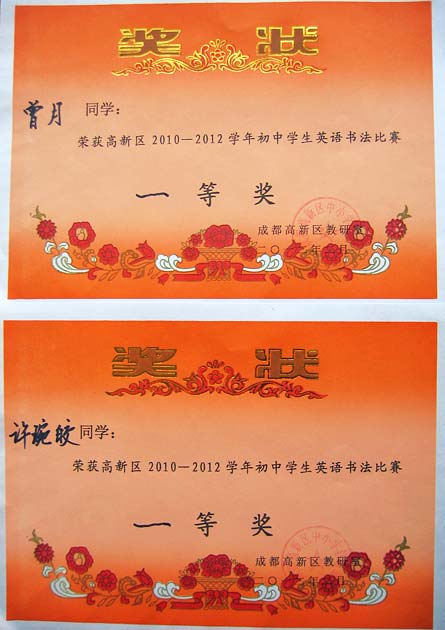 奖 状
曾月 同学：
荣获高新区2010—2012学年初中学生英语书法比赛
一 等 奖
成都高新区教研室
奖 状
许琬皎同学：
荣获高新区2010—2012学年初中学生英语书法比赛
一 等 奖
成都高新区教研室